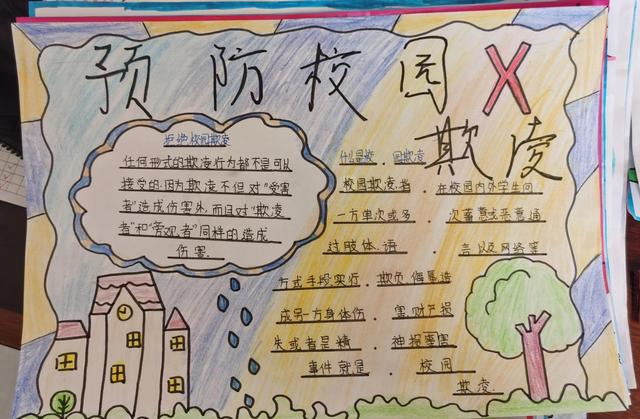 预防校园
欺凌
拒绝校园欺凌
任何形式的欺凌行为都不是可以
接受的.因为欺凌不但对"受害
者"造成伤害外,而且对"欺凌
者"和"旁观者"同样的造成
伤害.
什么是校园欺凌
校园欺凌指.在校园内外学生间
一方单次或多.次蓄意或恶意通
过肢体.语.言以及网络等
方式手段实行.欺负.侮辱造
成另一方身体伤.害.财产损
失或者是精.神损害
事件就是.校园
欺凌.